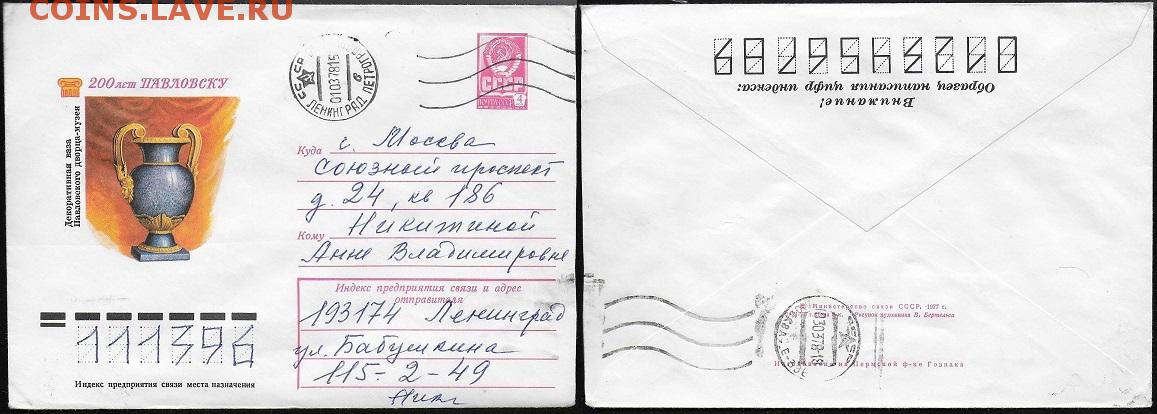 СОINS.LAVE.RU
200 лет ПАВЛОВСКУ
Декоративная ваза
Павловского дворца-музея
СССР
ЛЕНИНГРАД
01037815
6
СССР
ПОЧТА СССР
4
Куда
г. Москва
Союзный проспект
д. 24, кв 186
Кому
Никитиной
Анне Владимировне
Индекс предприятия связи и адрес
отправителя
193174 Ленинград
ул. Бабушкина
115-2-49
111396
Индекс предприятия связи места назначения
Внимание!
Образец написания цифр индекса:
0123456789
Министерство связи СССР, 1977 г.
Рисунок художника В. Бертельса
Пермской ф-ке Гознака